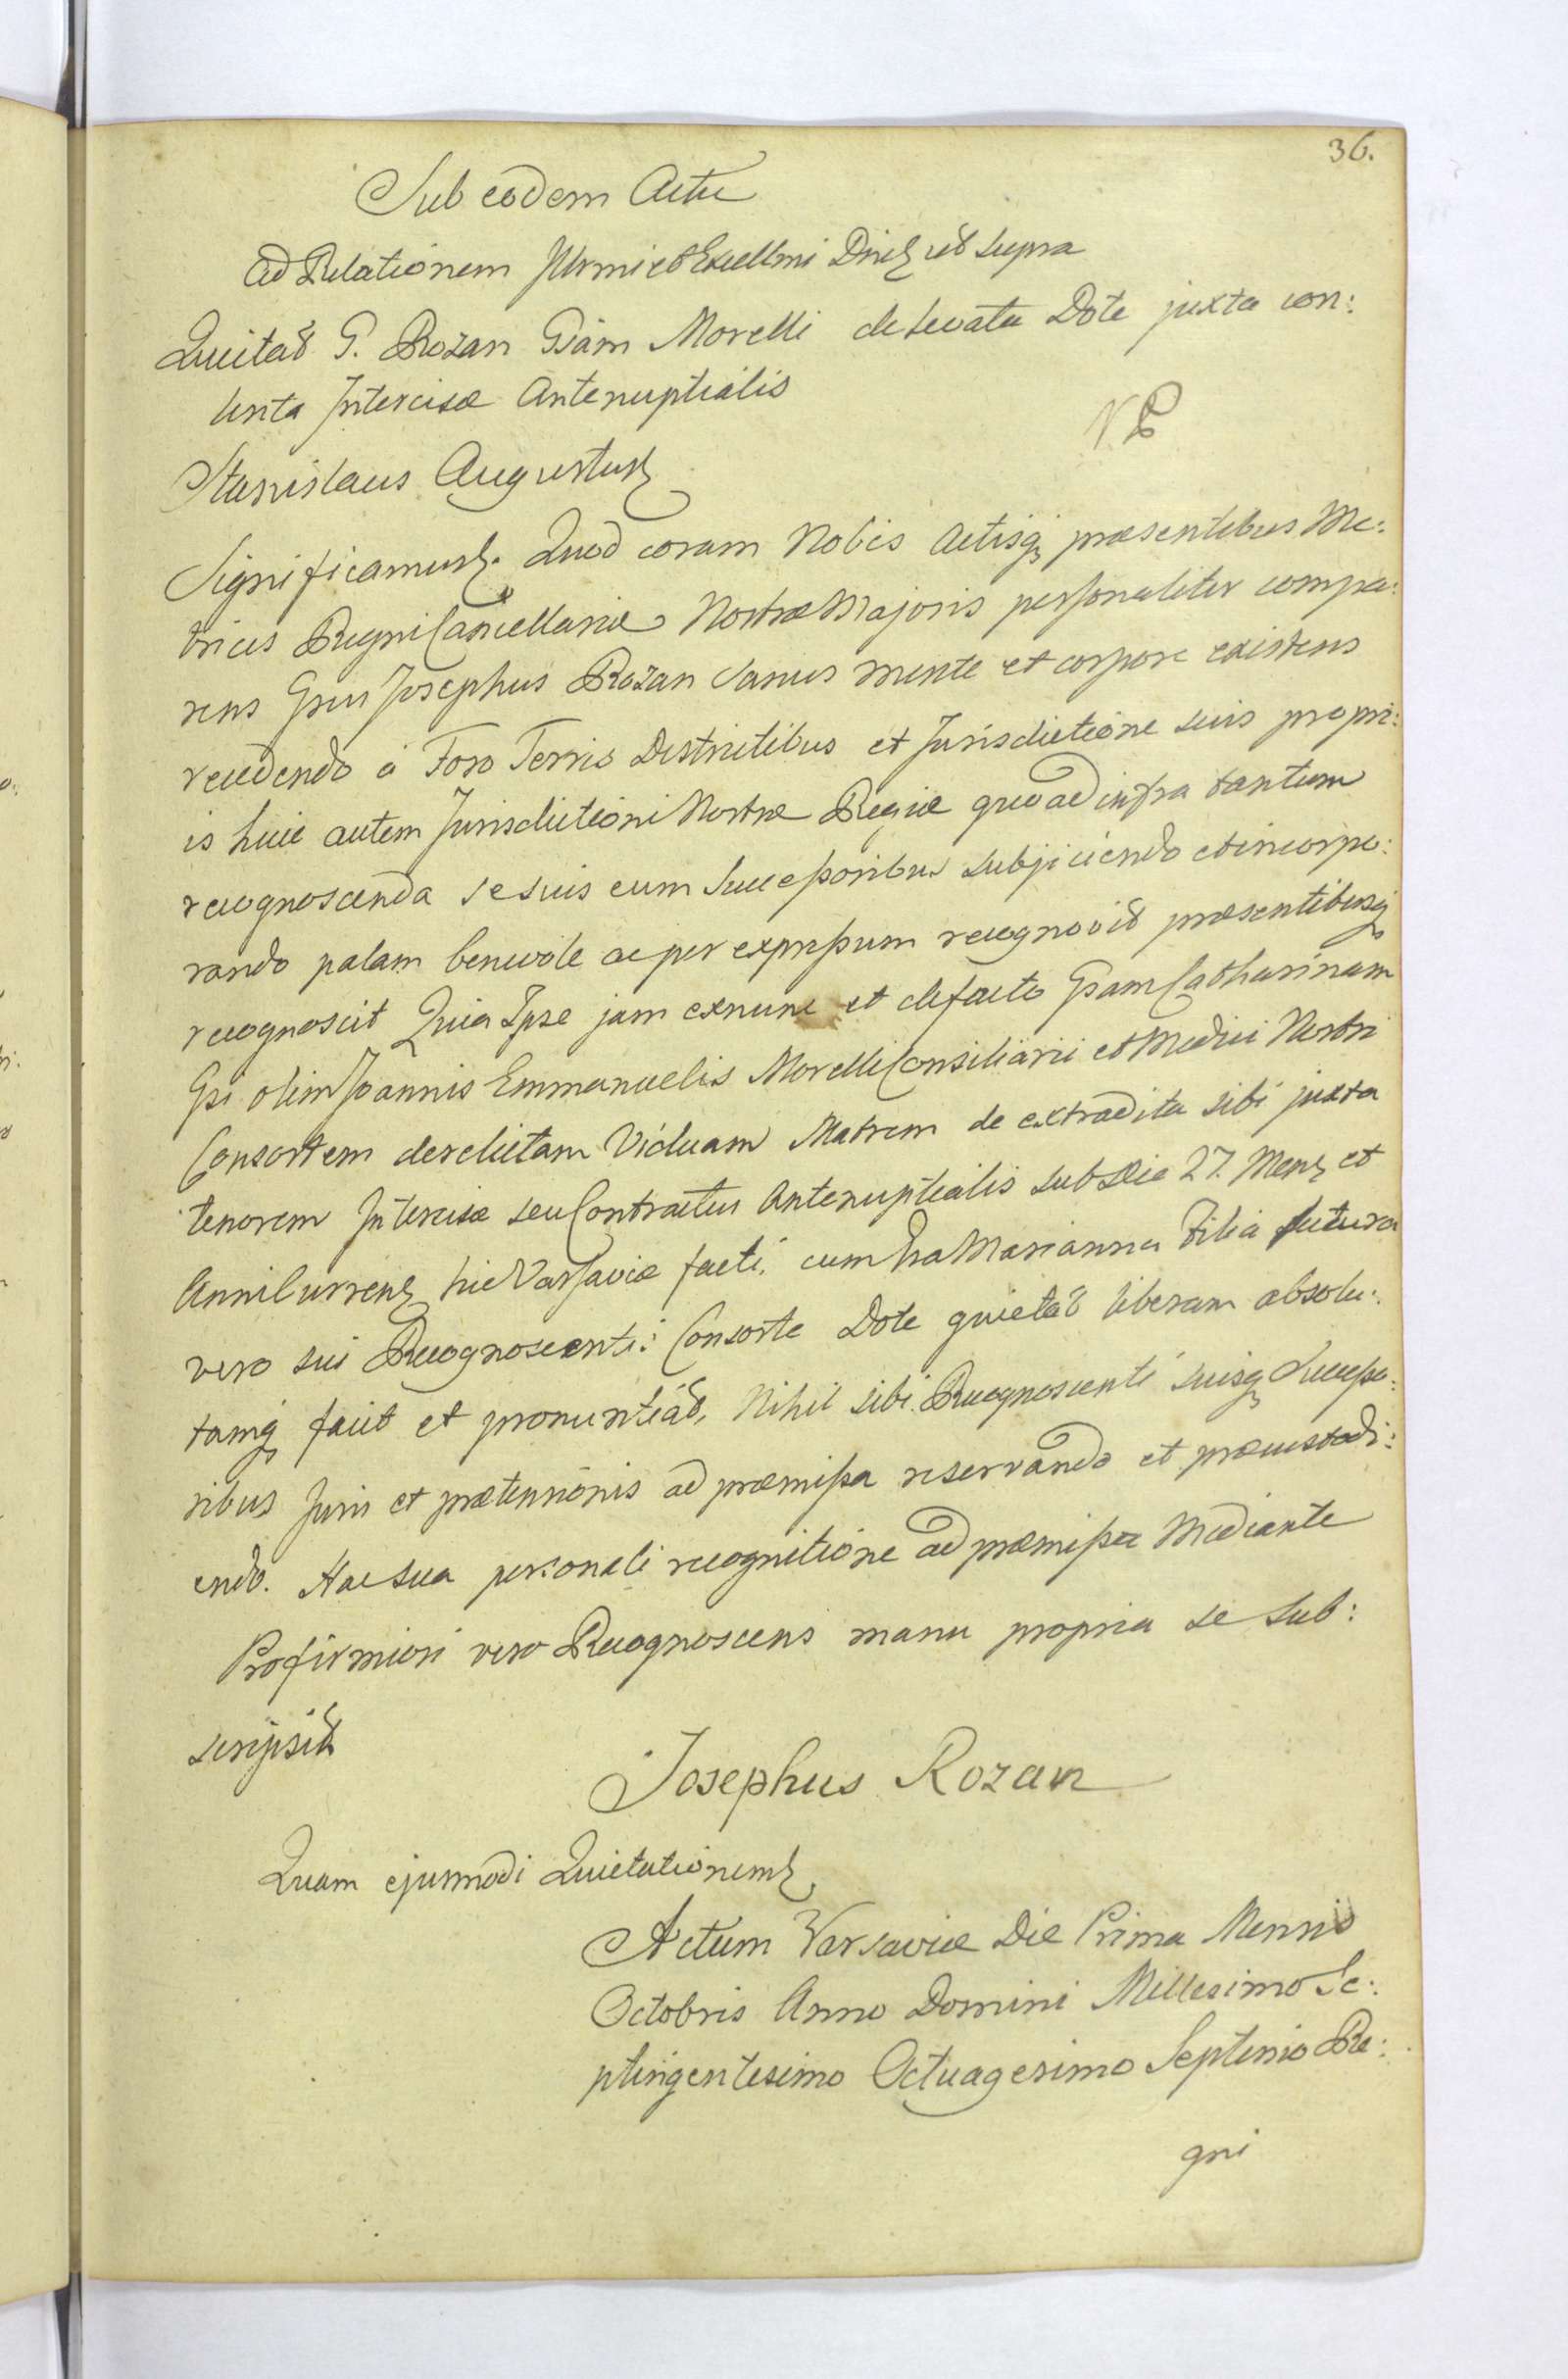 36.
Sub eodem Actu
Ad Relationem Illrmi et Excellmi Dni ut supra
Quietat G. Rozan Gsam Morelli de levata Dote juxta con:
tenta Intercisæ Antenuptialis
NP
Stanislaus Augustus
Significamus. Quod coram Nobis Actisq præsentibus Me:
trices Regni Cancellariæ Nostræ Majoris personaliter compa:
rens Gsus Josephus Rozan sanus mente et corpore existens
recedendo à Foro Terris Districtibus et Jurisdictione suis propri:
is huic autem Jurisdictioni Nostræ Regiæ quo ad infra tantum
recognoscenda se suis cum Successoribus subjiciendo et incorpo:
rando palam benevole ac per expressum recognovit præsentibusq
recognoscit Quia Ipse jam ex nunc et de facto Gsam Catharinam
Gsi olim Joannis Emmanuelis Morelli Consiliarii et Medici Nostri
Consortem derelictam Viduam Matrem de extradita sibi juxta
tenorem Intercisæ seu Contractus Antenuptialis sub Die 27. Mens et
Anni Curren hic Varsaviæ facti, cum Gsa Marianna Filia futura
vero sui Recognoscenti: Consorte Dote quietat liberam absolu:
tamq facit et pronuntiat, Nihil sibi Recognoscenti suisq Successo:
ribus Juris et prætensionis ad præmissa reservando et præcustodi:
endo. Hac sua personali recognitione ad præmissa Mediante
Pro firmiori vero Recognoscens manu propria se sub:
scripsit
Josephus Rozan
Quam ejusmodi Quietationem
Actum Varsaviæ Die Prima Mensis
Octobris Anno Domini Millesimo Se:
ptingentesimo Octuagesimo Septimo Re:
gni